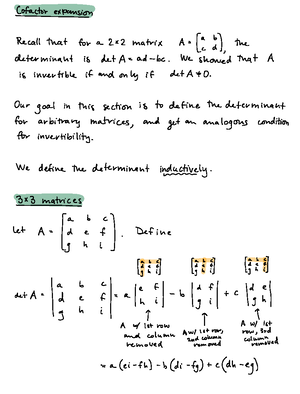 Cofactor expansion
Recall that for a 2×2 matrix A = [a b; c d], the
determinant is det A = ad-bc. We showed that A
is invertible if and only if det A ≠ 0.
Our goal in this section is to define the determinant
for arbitrary matrices, and get an analogous condition
for invertibility.
We define the determinant inductively.
3×3 matrices
Let A = [a b c; d e f; g h i]. Define
a b c a b c a b c
d e f d e f d e f
g h i g h i g h i
det A = |a b c; d e f; g h i| = a |e f; h i| - b |d f; g i| + c |d e; g h|
A w/ 1st row and column removed
A w/ 1st row, 2nd column removed
A w/ 1st row, 3rd column removed
= a(ei-fh) - b(di-fg) + c(dh-eg)